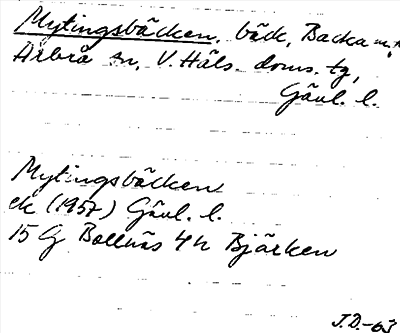 Mytingsbäcken, bäck, Backa m.fl.
Arbrå sn, V. Häls. doms. tg,
Gävl. l.
Mytingsbäcken
ek (1957) Gävl. l.
15 G Bollnäs 4h Bjärken
J.D.-63